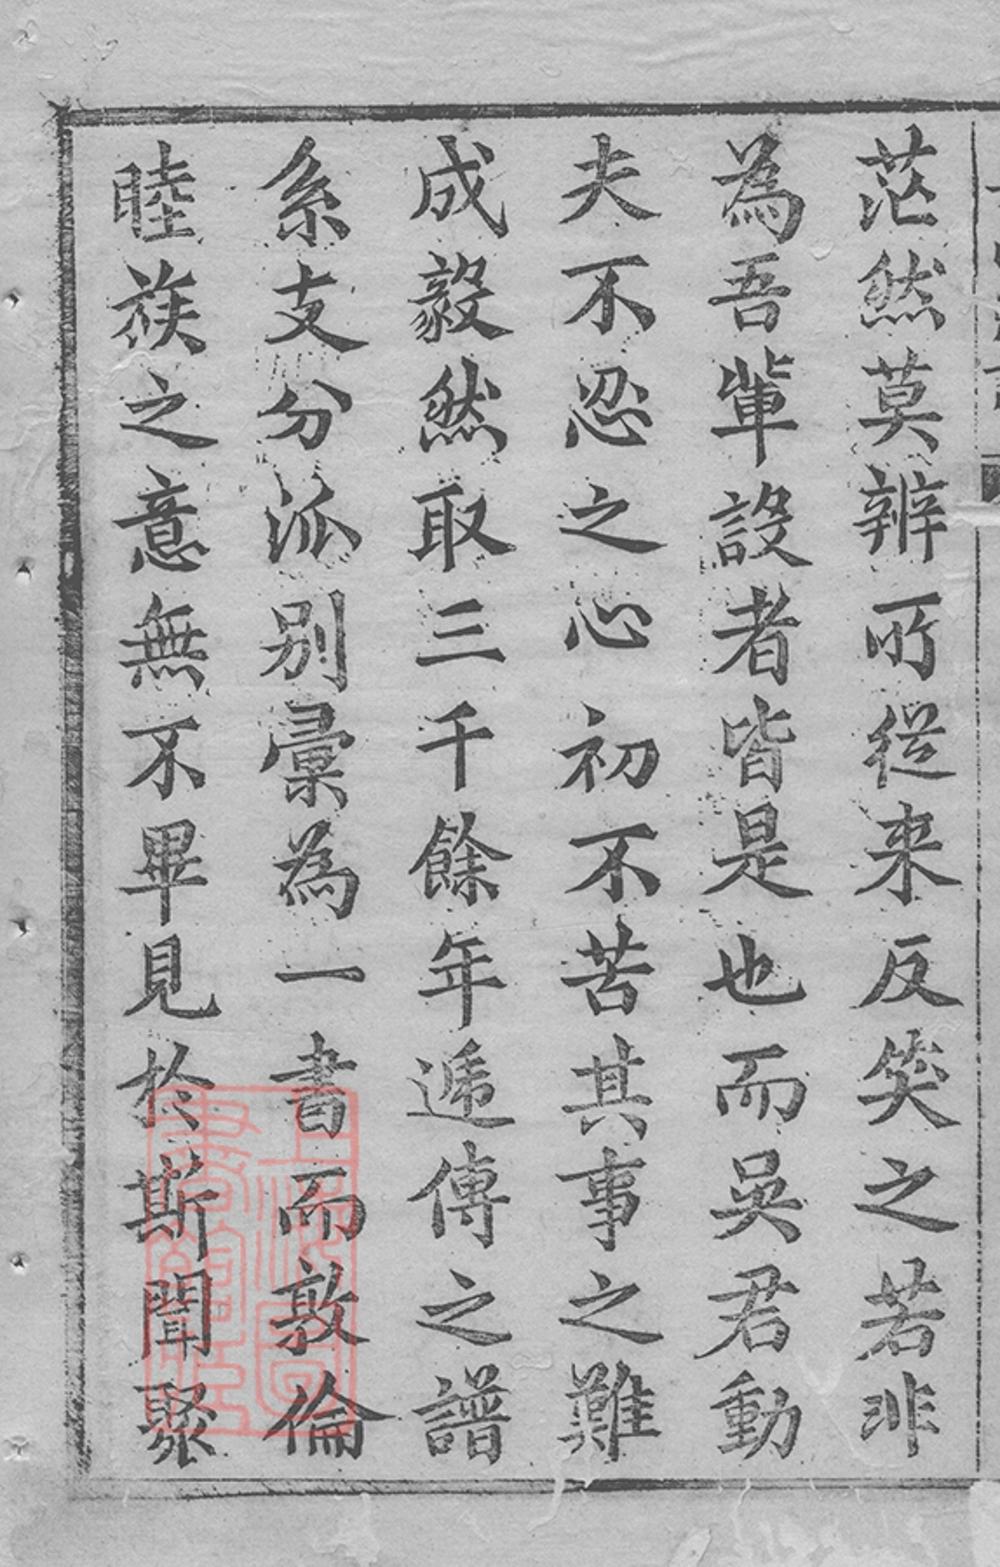 茫然莫辨所從來反笑之若非
為吾輩設者皆是也而吳君動
夫不忍之心初不苦其事之難
成毅然取三千餘年遞傳之譜
系支分派別彙為一書而敦倫
睦族之意無不畢見於斯聞聚
上海圖書館藏